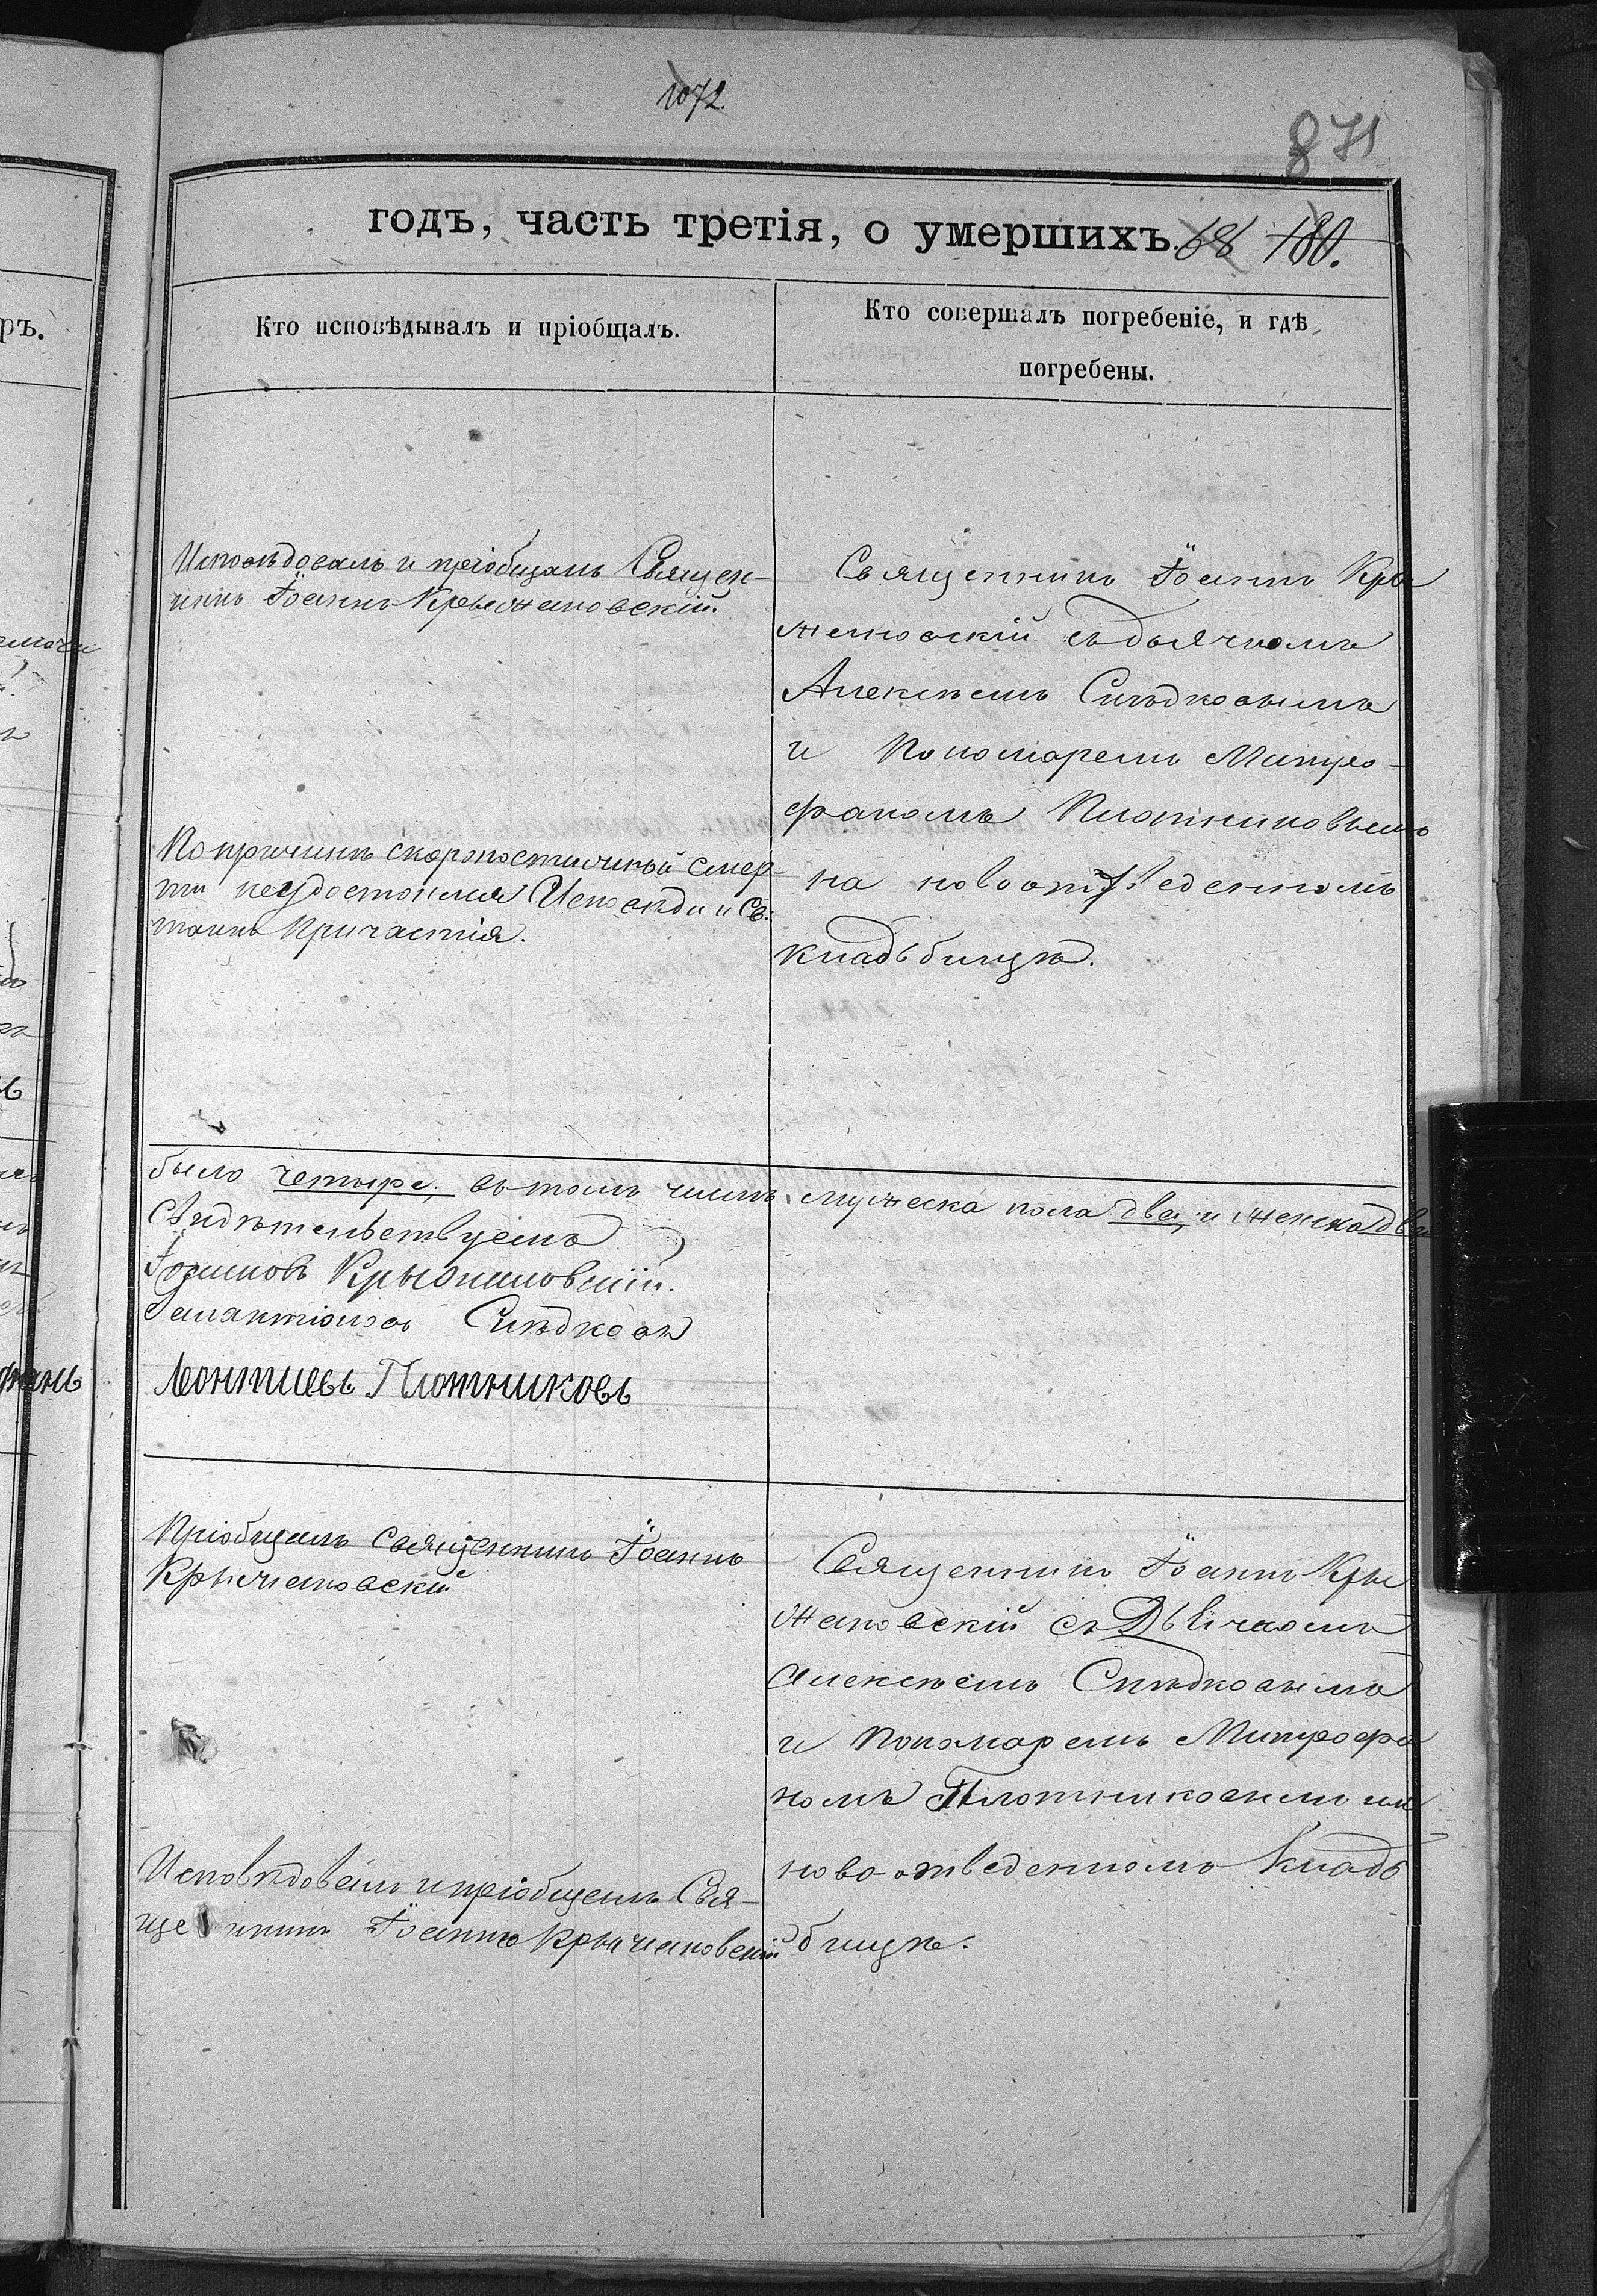 1072.
871
годъ, часть третія, о умершихъ. 68 180.
Кто исповѣдывалъ и пріобщалъ.
Кто совершалъ погребеніе, и гдѣ
погребены.
Исповѣдовалъ и пріобщалъ Священ-
никъ Іоаннъ Крыжановскій.
По причинѣ скоропостижной смер-
ти неудостоился Исповѣди и Св.
таинъ Причастія.
Священникъ Іоаннъ Кры
жановскій съ дьячкомъ
Алексѣемъ Слѣдковымъ
и Пономаремъ Митро-
фаномъ Плотниковымъ
на новоотведенномъ
кладьбищѣ.
было четыре; въ томъ числѣ мужеска пола два, и женска два
Свидѣтельствуемъ
Крыжановскій.
Слѣдковъ
Леонтіевъ Плотниковъ
Пріобщалъ священникъ Іоаннъ
Крыжановскій
Исповѣдовалъ и пріобщалъ Свя-
щенникъ Іоаннъ Крыжановскій
Священникъ Іоаннъ Кры
жановскій съ Дьячкомъ
Алексѣемъ Слѣдковымъ
и Пономаремъ Митрофа
номъ Плотниковымъ на
ново-отведенномъ Кладь
бищѣ.